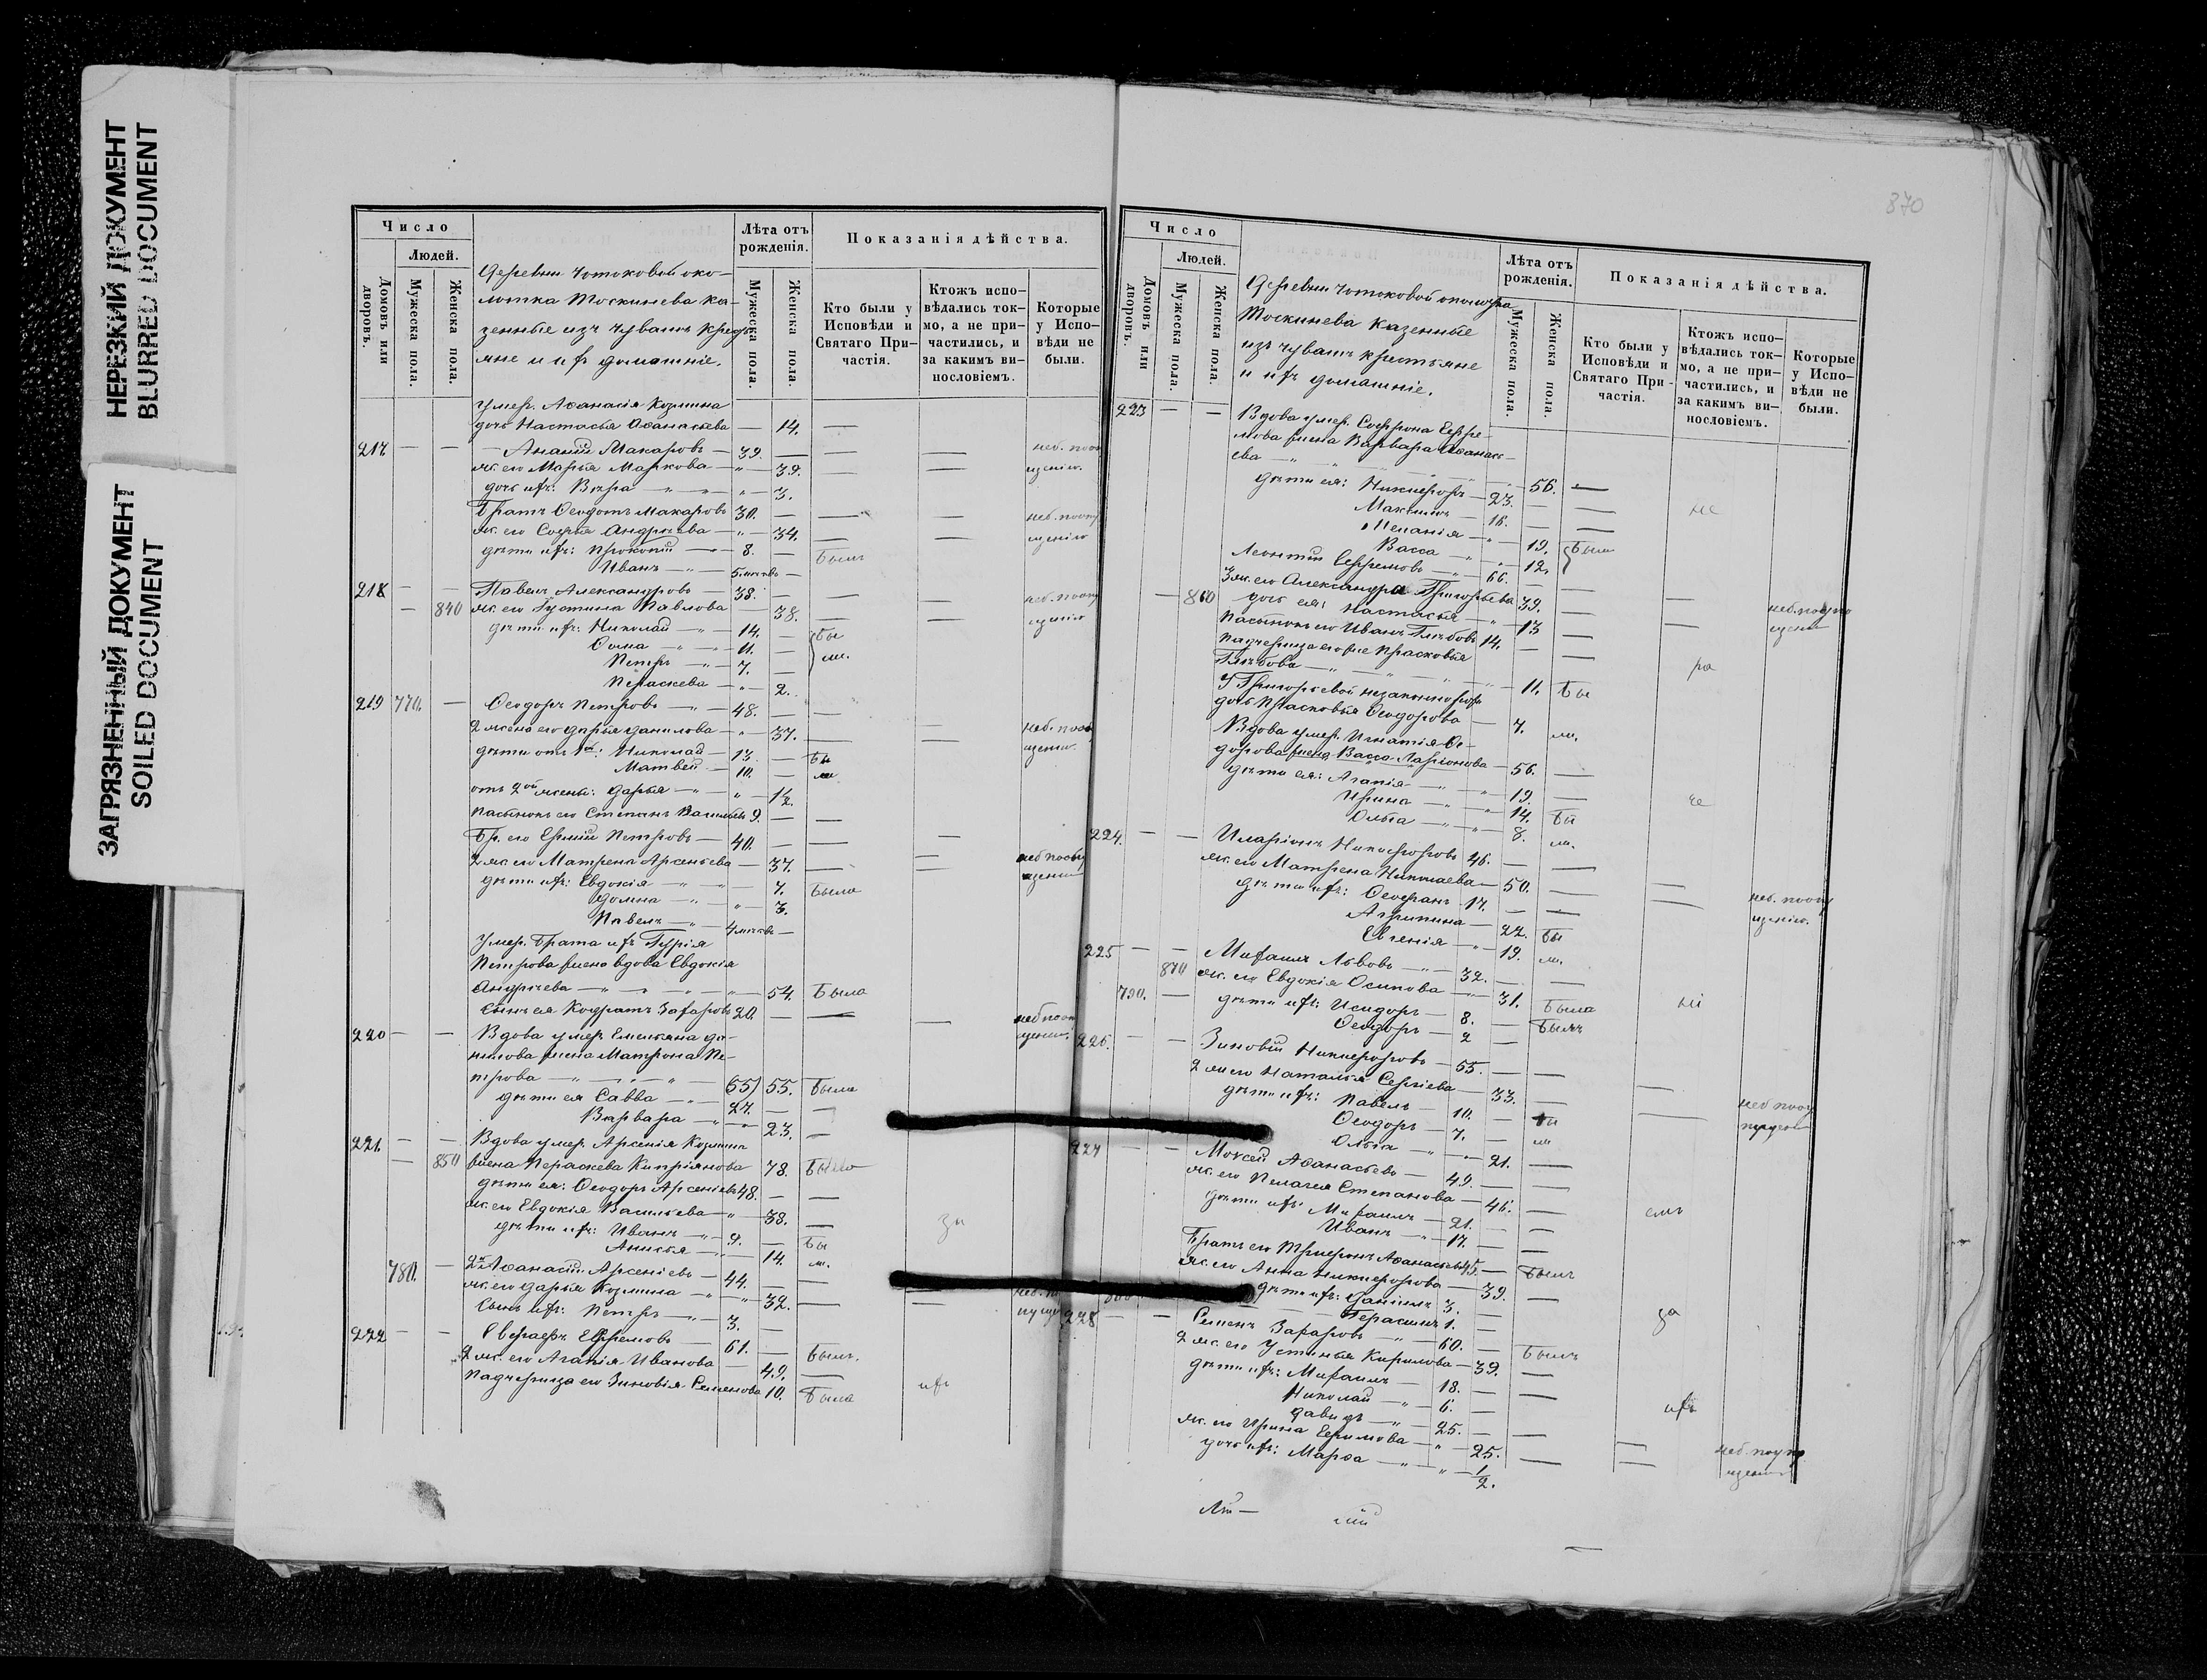 НЕРЕЗКИЙ ДОКУМЕНТ
BLURRED DOCUMENT
ЗАГРЯЗНЕННЫЙ ДОКУМЕНТ
SOILED DOCUMENT
Число
Людей.
Домовъ или дворовъ.
Мужеска пола.
Женска пола.
Деревни Чотоковой око-
лотка Москинева ка-
зенные изъ чувашъ крест
яне и ихъ домашніе.
Лѣта отъ рожденія.
Мужеска пола.
Женска пола.
Показанія дѣйства.
Кто были у Исповѣди и Святаго При-частія.
Ктожъ испо-вѣдались ток-мо, а не при-частились, и за какимъ ви-нословіемъ.
Которые у Испо-вѣди не были.
умер. Аѳанасія Козмина
дочь Настасья Аѳанасьева — 14. —
217 — — Ананій Макаровъ — 39. — — — неб. по
ж. его Марья Маркова — „ — 39. — — щенію.
дочь ихъ: Вѣра — „ — 3.
Братъ Ѳеодотъ Макаровъ 30. — — — неб. по
ж. его Софья Андреева — „ — 34. — — щенію
дѣти ихъ: Прокопій — 8. — Былъ
Иванъ — „ — 5.
218 — — Павелъ Александровъ — 38. — — —
— 840 ж. его Устинья Павлова — 38. — —
дѣти ихъ: Николай — „ — 14. — Бы
Ѳома — „ — 11. — ли.
Петръ — „ — 7. —
Параскева — „ — 2.
219 770. — Ѳеодоръ Петровъ — „ — 48. — —
2 жена его Дарья Данилова — „ — 37. — —
дѣти отъ 1ой: Николай — 13. — Бы
Матвей — 10. — ли
отъ 2ой жены: Дарья — „ — „ — 1½.
пасынокъ его Степанъ Васильевъ 9. — —
Бр. его Ермій Петровъ — 40. — — —
2 ж. его Матрена Арсеньева — 37. — —
дѣти ихъ: Евдокія — „ — 7. Была
Домна — „ — „ — 3.
Павелъ — „ — 4
умер. Брата ихъ Гурія
Петрова жена вдова Евдокія
Андреева — „ — „ — 54. Была
сынъ ея Кодратъ Захаровъ 20. — — —
220 — — Вдова умер. Емельяна Да-
нилова жена Матрона Пе-
трова — „ — (55) 55. Была
дѣти ея Савва — „ — 27. — —
Варвара — „ — 23. —
221. — — Вдова умер. Арсенія Козмина
— 850 жена Параскева Кипріянова 78. Была
дѣти ея: Ѳеодоръ Арсеніевъ 48. — —
ж. его Евдокія Васильева — „ — 38. — за
дѣти ихъ: Иванъ — „ — 9. — Бы
Анисья — „ — 14. ли.
780. — 2й Аѳанасій Арсеніевъ — 44. — —
ж. его Дарья Козмина — „ — „ — 32. — —
сынъ ихъ: Петръ — „ — 3. —
222 — — Ефремовъ — 61. — Былъ.
2 ж. его Агапія Иванова — 49. —
падчерица его Зиновія Семенова 10. Была ихъ
870
Число
Людей.
Домовъ или дворовъ.
Мужеска пола.
Женска пола.
Деревни Чотоковой околотка
Москинева казенные
изъ чувашъ крестьяне
и ихъ домашніе.
Лѣта отъ рожденія.
Мужеска пола.
Женска пола.
Показанія дѣйства.
Кто были у Исповѣди и Святаго При-частія.
Ктожъ испо-вѣдались ток-мо, а не при-частились, и за какимъ ви-нословіемъ.
Которые у Испо-вѣди не были.
223 — — Вдова умер. Софрона Ефре-
мова жена Варвара Аѳанась-
ева — „ — „ — 56. —
дѣти ея: Никифоръ — 23. — — не
Максимъ — 16. — —
Меланія — „ — 19. Были
Васса — „ — 12.
Леонтій Ефремовъ — „ — 66. — — —
3 ж. его Александра Григорьева 39. — —
— 860 дочь ея: Настасья — „ — 13 —
пасынокъ его Иванъ Глѣбовъ 14. — — ра
падчерица его Прасковья
Глѣбова — „ — 11. Бы
У Григорьевой незаконнорож
дочь Прасковья Ѳеодорова — 7. ли.
Вдова умер. Игнатія Ѳе-
дорова жена Васса Ларіонова — 56. —
дѣти ея: Агапія — „ — 19. — че
Ирина — „ — 14. Бы
Ольга — „ — 8. ли.
224. — — Иларіонъ Никифоровъ 46. — — —
ж. его Матрена Николаева — 50. — — неб. по
дѣти ихъ: Ѳеофанъ — 17. — — щенію.
Агрипина — 22. Бы
Евгенія — „ — 19. ли.
225 — — Михаилъ Львовъ — „ — 32. — —
870 ж. его Евдокія Осипова — „ — 31. Была
790. — дѣти ихъ: Исидоръ — 8. — Былъ
Ѳеодоръ — 2 —
226. — — Зиновій Никифоровъ — 55. — — —
2 ж. его Наталья Сергіева — 33. — —
дѣти ихъ: Павелъ — 10. — Бы
Ѳеодоръ — 7. — ли
Ольга — „ — 21. —
227 — — Моисей Аѳанасьевъ — 49. — —
ж. его Пелагея Степанова — 46. —
дѣти ихъ: Михаилъ — 21. — —
Иванъ — „ — 17. — —
Братъ его Трифонъ Аѳанасьевъ 45. — Былъ
ж. его Анна Никифорова — 39. —
дѣти ихъ: Даніилъ 3. — да
Герасимъ 1. —
228 — — Семенъ Захаровъ — „ — 60. — Былъ
2 ж. его Устинья Кирилова — 39. —
дѣти ихъ: Михаилъ — 18. — —
Николай — „ — 6. — ихъ
Давидъ — „ — 25. — — —
ж. его Ирина Ефимова — „ — 25. — —
дочь ихъ: Марѳа — „ — „ — ½.